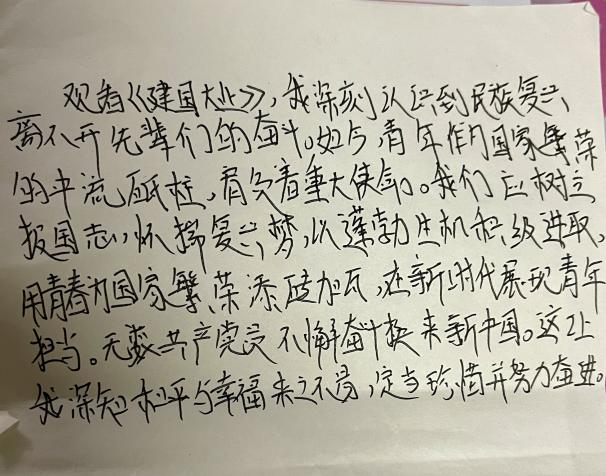 观看《建国大业》，我深刻认识到民族复兴
离不开先辈们的奋斗。如今，青年作为国家繁荣
的中流砥柱，肩负着重大使命。我们应树立
报国志，怀揣复兴梦，以蓬勃生机积极进取，
用青春为国家繁荣添砖加瓦，在新时代展现青年
担当。无数共产党员不懈奋斗换来新中国。这让
我深知和平与幸福来之不易，定当珍惜并努力奋进。